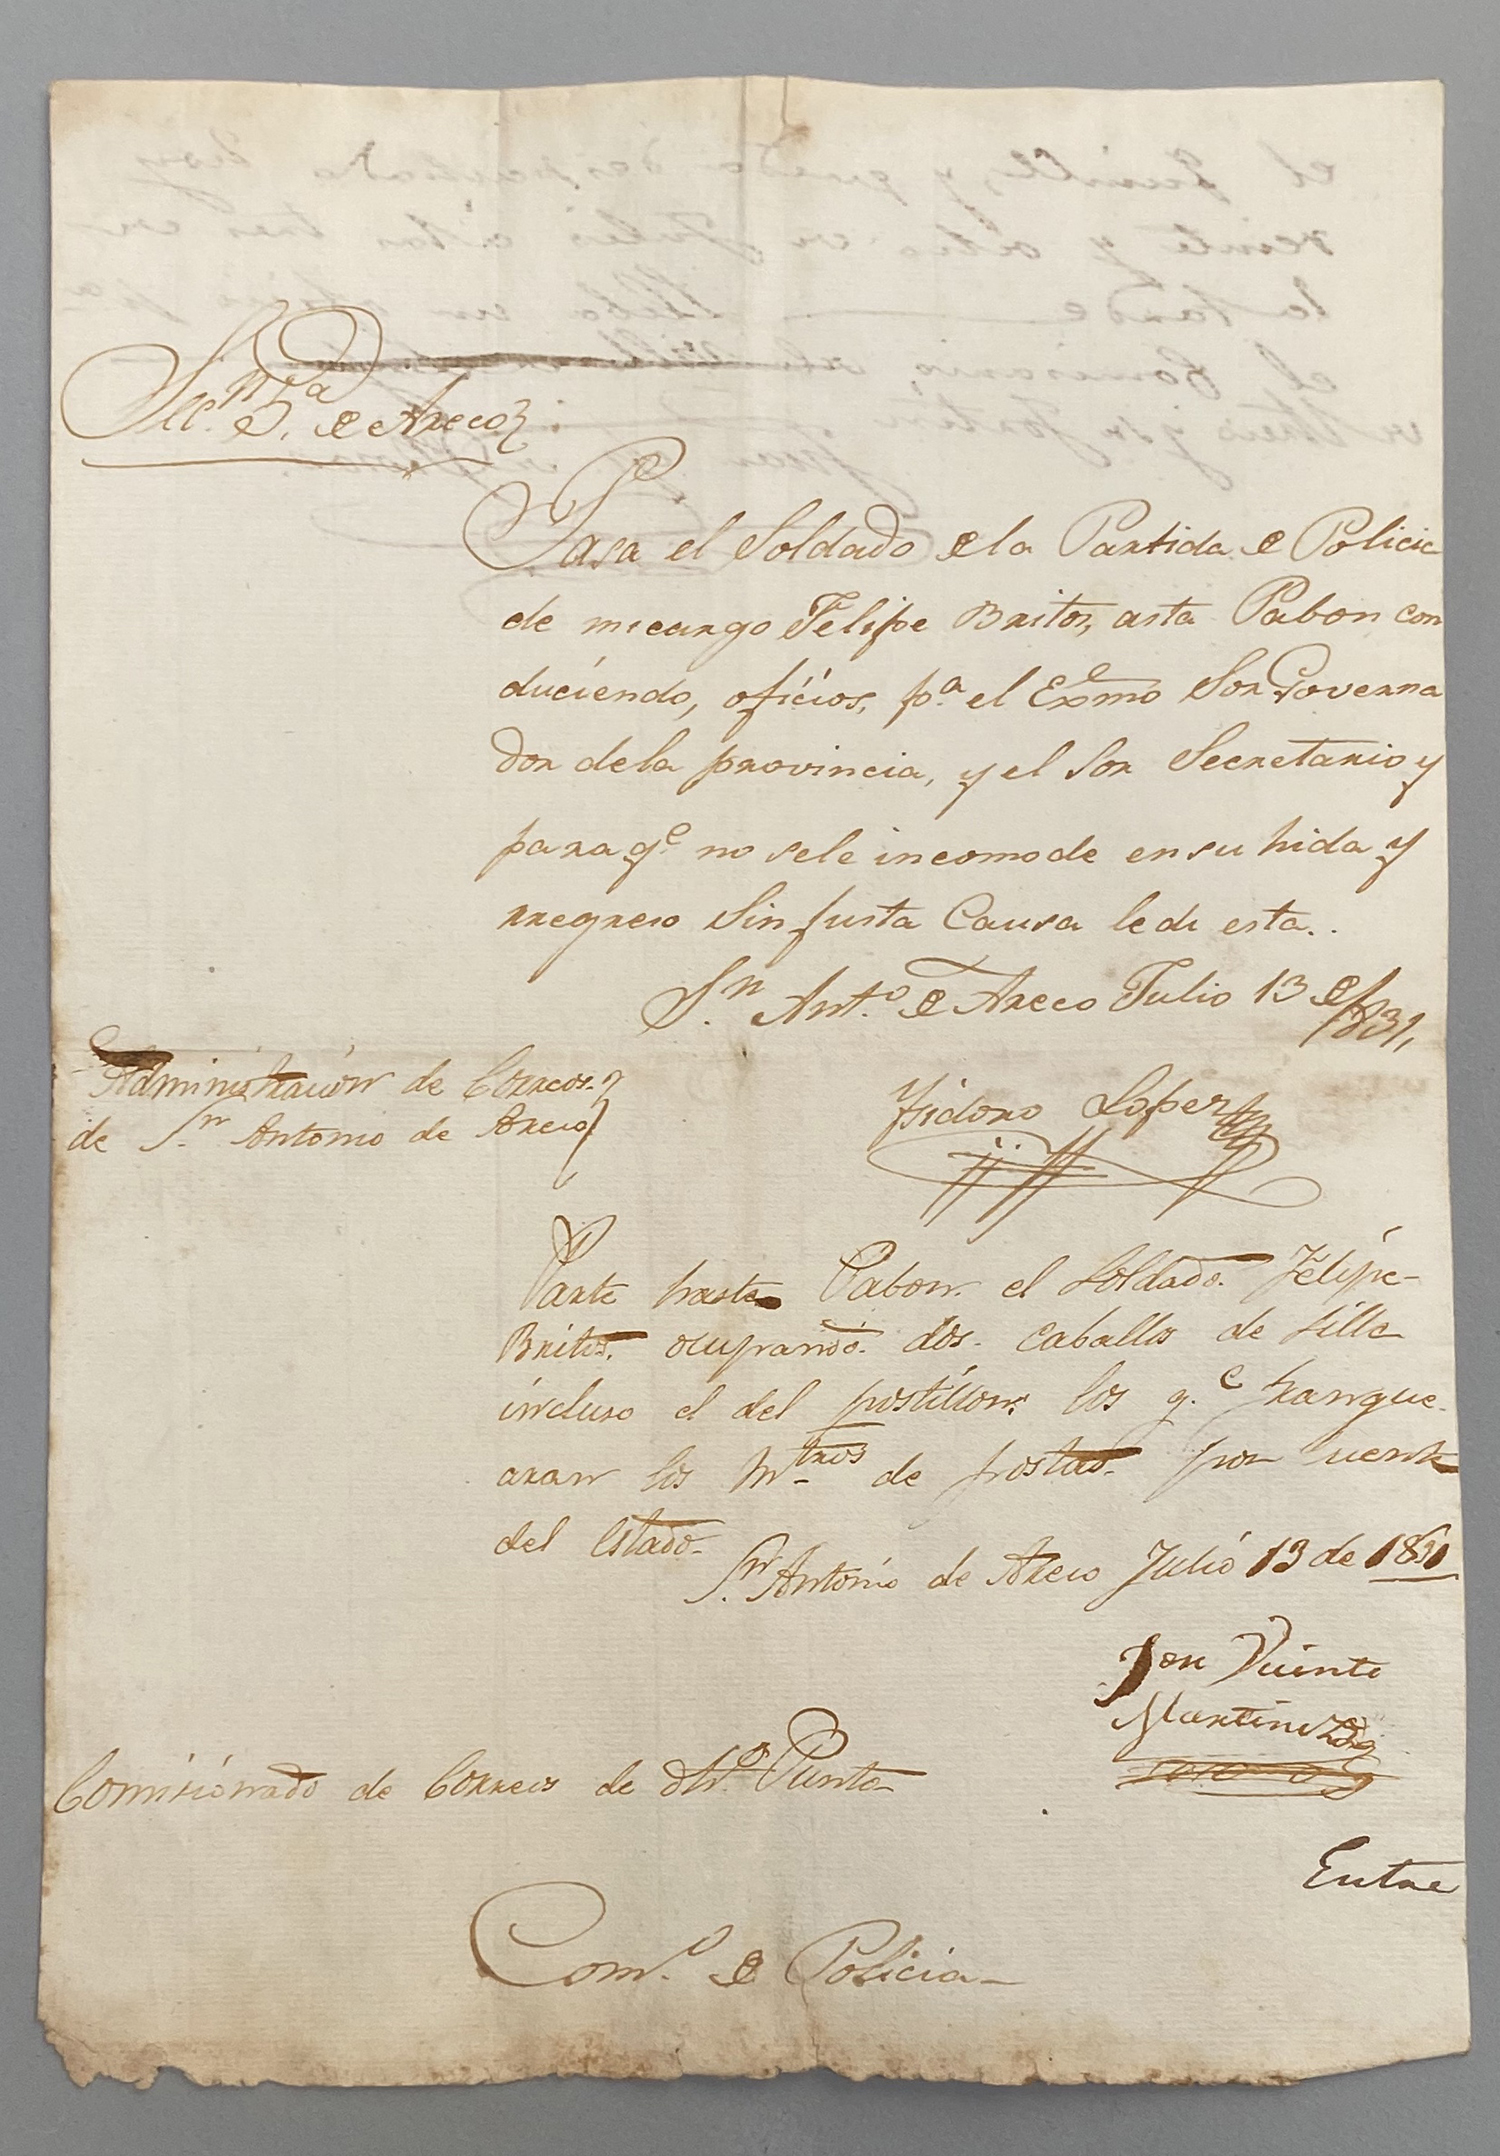 Secc.n 5.a de Areco
Pasa el Soldado de la Partida de Policia
de micargo Felipe Britos, asta Pabon con
duciendo, oficios, p.a el Exmo Sor Governa
dor dela provincia, y el Sor Secretario y
para q.e no sele incomode ensu hida y
rregreso Sin Justa Causa le di esta..
S.n Ant.o de Areco Julio 13 de/831,
Administracion de Correos.
de S.n Antonio de Areco
Ysidoro Lopez
Parte hasta Pabon. el Soldado. Felipe
Britos. ocupando. dos. caballos de silla
incluso el del postillon. los q.e franque-
aran los M.tros de postas. por cuenta
del Estado.
S.n Antonio de Areco Julio 13 de 1831
Jose Vicente
Martinez
Comisionado de Correos de dho. Punto
Entre
Com.o de Policia